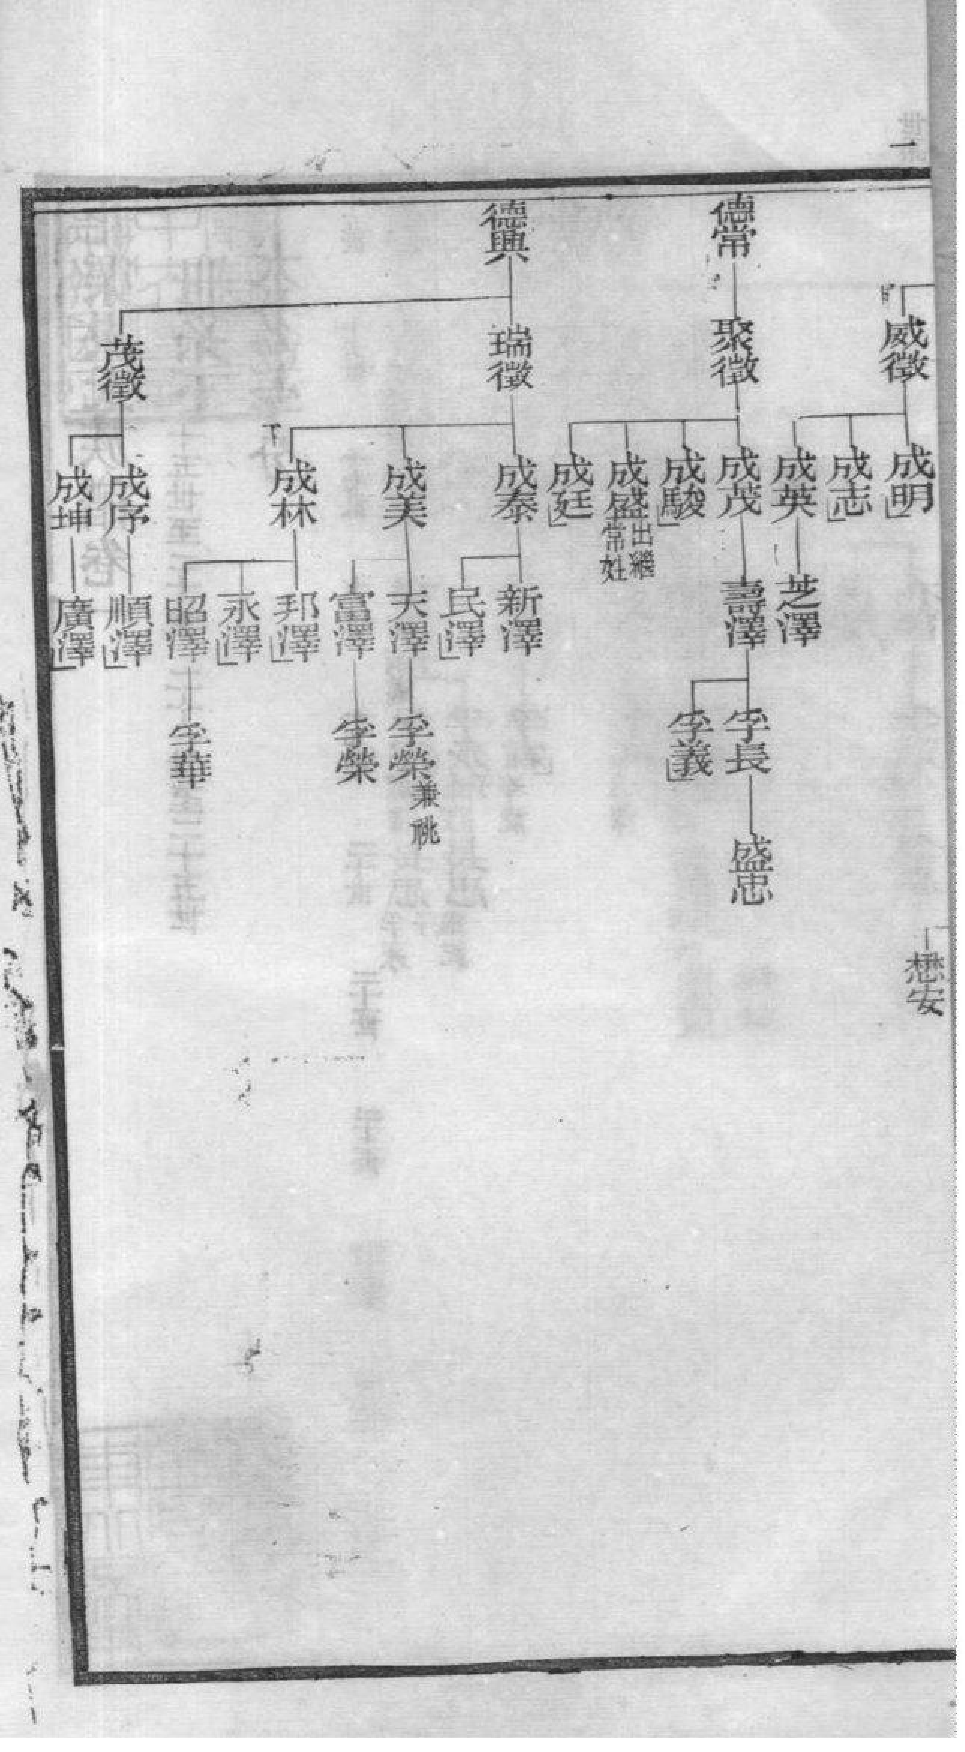 威徵
成明
成志
成英
芝澤
懋安
德常
聚徵
成茂
成駿
成盛
出繼
常姓
成廷
壽澤
孚長
孚義
盛忠
德興
瑞徵
成泰
成美
成林
新澤
民澤
天澤
富澤
邦澤
永澤
昭澤
孚榮
兼祧
孚榮
孚華
茂徵
成序
成坤
順澤
廣澤